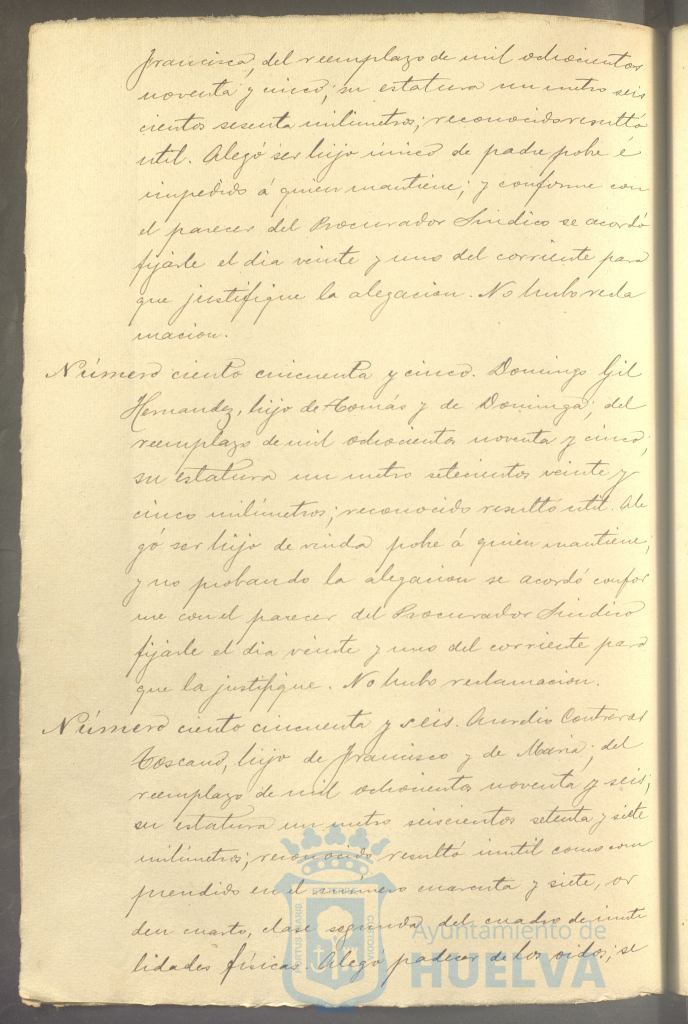 Francisca, del reemplazo de mil ochocientos
noventa y cinco; su estatura un metro seis
cientos sesenta milimetros; reconocido resultó
util. Alegó ser hijo único de padre pobre é
impedido á quien mantiene; y conforme con
el parecer del Procurador Sindico se acordó
fijarle el dia veinte y uno del corriente para
que justifique la alegacion. No hubo recla
macion.
Número ciento cincuenta y cinco. Domingo Gil
Hernandez, hijo de Tomás y de Dominga; del
reemplazo de mil ochocientos noventa y cinco;
su estatura un metro setecientos veinte y
cinco milimetros; reconocido resultó util. Ale
gó ser hijo de viuda pobre á quien mantiene;
y no probando la alegacion se acordó confor
me con el parecer del Procurador Sindico
fijarle el dia veinte y uno del corriente para
que la justifique. No hubo reclamacion.
Número ciento cincuenta y seis. Aurelio Contreras
Toscano, hijo de Francisco y de Maria; del
reemplazo de mil ochocientos noventa y seis;
su estatura un metro seiscientos setenta y siete
milimetros; reconocido resultó inutil como com
prendido en el número cuarenta y siete, or
den cuarto, clase segunda del cuadro de inuti
lidades físicas. Alegó padecer de los oidos; se
PORTUS MARIS
CUSTODIA
Ayuntamiento de
HUELVA